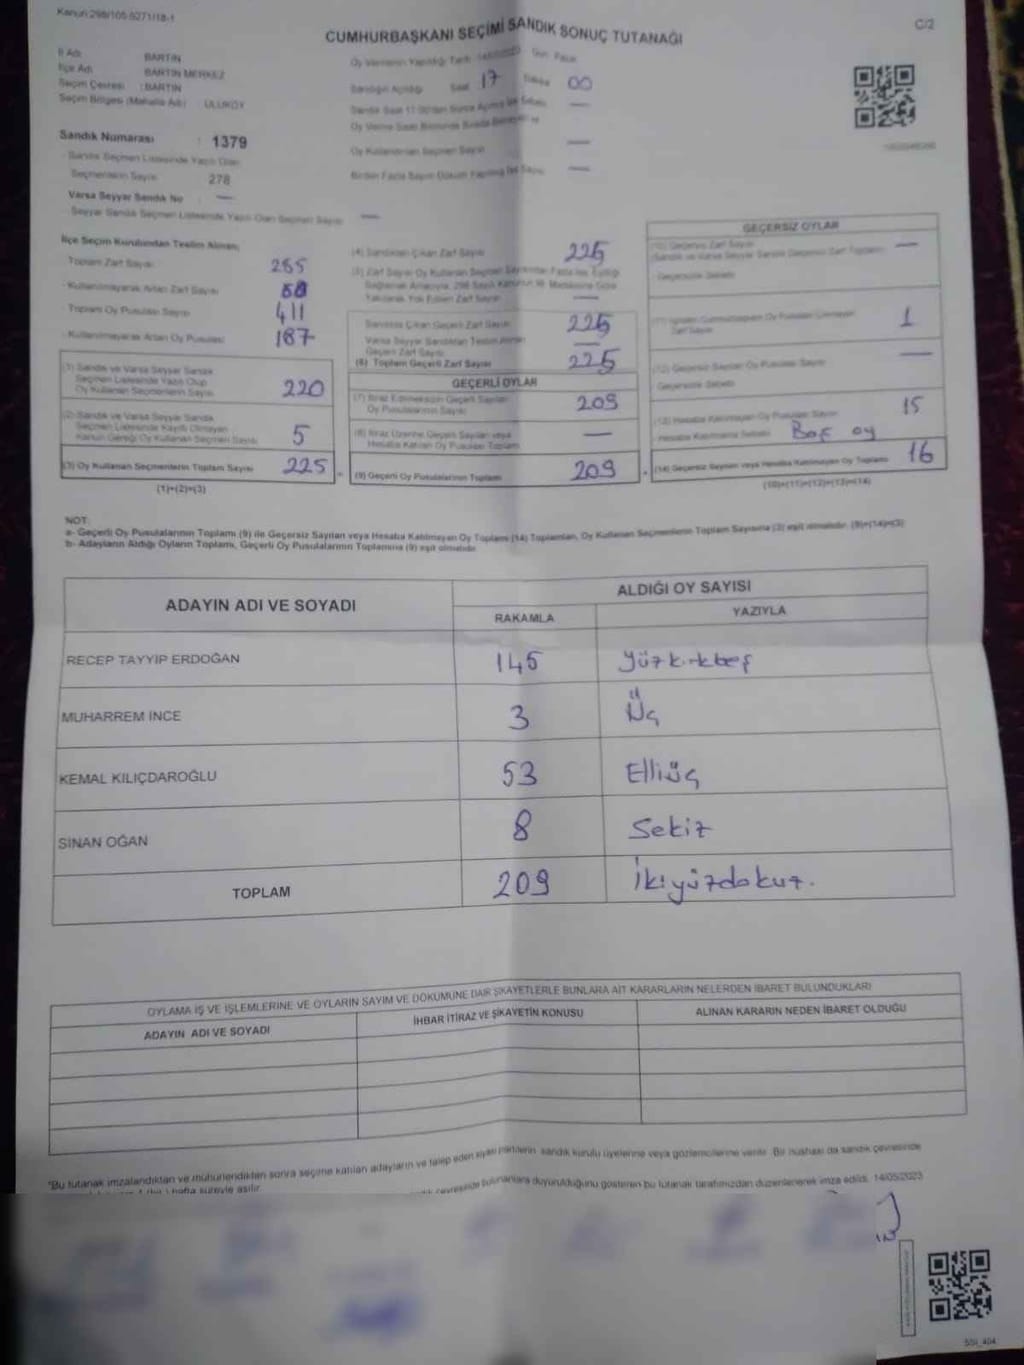 Kanun 298/105-5271/18-1
C/2
CUMHURBAŞKANI SEÇİMİ SANDIK SONUÇ TUTANAĞI
İl Adı BARTIN
İlçe Adı BARTIN MERKEZ
Seçim Çevresi : BARTIN
Seçim Bölgesi (Mahalle Adı) ULUKÖY
Sandık Numarası : 1379
Sandık Seçmen Listesinde Yazılı Olan
Seçmenlerin Sayısı 278
Varsa Seyyar Sandık No —
Seyyar Sandık Seçmen Listesinde Yazılı Olan Seçmen Sayısı —
Oy Vermenin Yapıldığı Tarih 14/05/2023 Gün Pazar
Sandığın Açıldığı Saat 17 Dakika 00
Oy Kullandırılan Seçmen Sayısı —
İlçe Seçim Kurulundan Teslim Alınan;
Toplam Zarf Sayısı 285
Kullanılmayarak Artan Zarf Sayısı
Toplam Oy Pusulası Sayısı 411
Kullanılmayarak Artan Oy Pusulası 187
(1) Sandık ve Varsa Seyyar Sandık
Seçmen Listesinde Yazılı Olup
Oy Kullanan Seçmenlerin Sayısı 220
(2) Sandık ve Varsa Seyyar Sandık
Seçmen Listesinde Kayıtlı Olmayan
Kanun Gereği Oy Kullanan Seçmen Sayısı 5
(3) Oy Kullanan Seçmenlerin Toplam Sayısı 225
(1)+(2)=(3)
(4) Sandıktan Çıkan Zarf Sayısı 225
(5) Zarf Sayısı Oy Kullanan Seçmen Sayısından Fazla İse, Eşitliği
Sağlamak Amacıyla, 298 Sayılı Kanunun 98. Maddesine Göre
Yakılarak Yok Edilen Zarf Sayısı —
Sandıkta Çıkan Geçerli Zarf Sayısı 225
Varsa Seyyar Sandıktan Teslim Alınan
Geçerli Zarf Sayısı —
(6) Toplam Geçerli Zarf Sayısı 225
GEÇERLİ OYLAR
(7) İtiraz Edilmeksizin Geçerli Sayılan
Oy Pusulalarının Sayısı 209
(8) İtiraz Üzerine Geçerli Sayılan veya
Hesaba Katılan Oy Pusulası Toplamı —
(9) Geçerli Oy Pusulalarının Toplamı 209
GEÇERSİZ OYLAR
(10) Geçersiz Zarf Sayısı
(Sandık ve Varsa Seyyar Sandık Geçersiz Zarf Toplamı) —
Geçersizlik Sebebi
Zarf Sayısı 1
(12) Geçersiz Sayılan Oy Pusulası Sayısı —
Geçersizlik Sebebi
(13) Hesaba Katılmayan Oy Pusulası Sayısı 15
Hesaba Katılmama Sebebi Boş oy
(14) Geçersiz Sayılan veya Hesaba Katılmayan Oy Toplamı 16
(10)+(11)+(12)+(13)=(14)
NOT:
a- Geçerli Oy Pusulalarının Toplamı (9) ile Geçersiz Sayılan veya Hesaba Katılmayan Oy Toplamı (14) Toplamları, Oy Kullanan Seçmenlerin Toplam Sayısına (3) eşit olmalıdır. (9)+(14)=(3)
b- Adayların Aldığı Oyların Toplamı, Geçerli Oy Pusulalarının Toplamına (9) eşit olmalıdır.
ADAYIN ADI VE SOYADI
ALDIĞI OY SAYISI
RAKAMLA YAZIYLA
RECEP TAYYİP ERDOĞAN 145 yüzkırkbeş
MUHARREM İNCE 3 Üç
KEMAL KILIÇDAROĞLU 53 Elliüç
SİNAN OĞAN 8 Sekiz
TOPLAM 209 İkiyüzdokuz.
OYLAMA İŞ VE İŞLEMLERİNE VE OYLARIN SAYIM VE DÖKÜMÜNE DAİR ŞİKAYETLERLE BUNLARA AİT KARARLARIN NELERDEN İBARET BULUNDUKLARI
ADAYIN ADI VE SOYADI İHBAR İTİRAZ VE ŞİKAYETİN KONUSU ALINAN KARARIN NEDEN İBARET OLDUĞU
*Bu tutanak imzalandıktan ve mühürlendikten sonra seçime katılan adayların ve talep eden siyasi partilerin sandık kurulu üyelerine veya gözlemcilerine verilir. Bir nüshası da sandık çevresinde
hafta süreyle asılır.
bulunanlara duyurulduğunu gösteren bu tutanak tarafımızdan düzenlenerek imza edildi. 14/05/2023
SSI_404